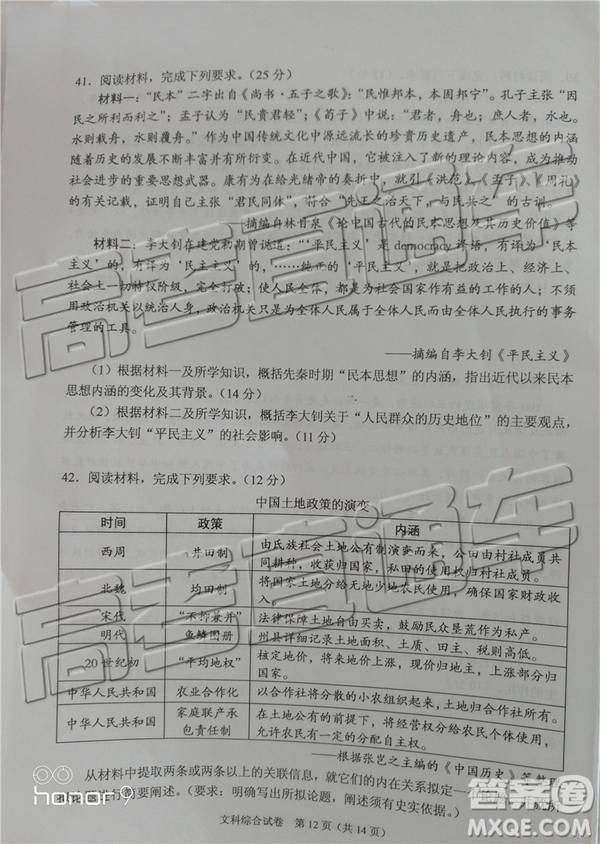 41．阅读材料，完成下列要求。（25 分）
材料一：“民本”二字出自《尚书·五子之歌》：“民惟邦本，本固邦宁”。孔子主张“因
民之所利而利之”；孟子认为“民贵君轻”；《荀子》中说：“君者，舟也；庶人者，水也。
水则载舟，水则覆舟。”作为中国传统文化中源远流长的珍贵历史遗产，民本思想的内涵
随着历史的发展不断丰富并有所衍变。在近代中国，它被注入了新的理论内容，成为推动
社会进步的重要思想武器。康有为在给光绪帝的奏折中，就引《洪范》《孟子》、《周礼》
的有关记载，证明自己主张“君民同体”，符合“先王之治天下，与民共之”的古训。
——摘编自林甘泉《论中国古代的民本思想及其历史价值》等
材料二：李大钊在建党初期曾说道：“‘平民主义’是 democracy 译语，有译为‘民本
主义’的，有译为‘民主主义’的，……纯正的‘平民主义’，就是把政治上、经济上、
社会上一切特权阶级，完全打破；使人民全体，都是为社会国家作有益的工作的人；不须
用政治机关以统治人身，政治机关只是为全体人民属于全体人民而由全体人民执行的事务
管理的工具。
——摘编自李大钊《平民主义》
（1）根据材料一及所学知识，概括先秦时期“民本思想”的内涵，指出近代以来民本
思想内涵的变化及其背景。（14 分）
（2）根据材料二及所学知识，概括李大钊关于“人民群众的历史地位”的主要观点，
并分析李大钊“平民主义”的社会影响。（11 分）
42．阅读材料，完成下列要求。（12 分）
中国土地政策的演变
时间 政策 内涵
西周 井田制 由氏族社会土地公有制演变而来，公田由村社成员共同耕种，收获归国家，私田的使用权归村社成员。
北魏 均田制 将国家土地分给无地少地农民使用，确保国家财政收入。
宋代 “不抑兼并” 法律保障土地自由买卖，鼓励民众垦荒作为私产。
明代 鱼鳞图册 州县详细记录土地面积、土质、田主、税则高低。
20 世纪初 “平均地权” 核定地价，将来地价上涨，现价归地主，上涨部分归国家。
中华人民共和国 农业合作化 以合作社将分散的小农组织起来，土地归合作社所有。
中华人民共和国 家庭联产承包责任制 在土地公有的前提下，将经营权分给农民个体使用，允许农民有一定的分配自主权。
——根据张岂之主编的《中国历史》等整理
从材料中提取两条或两条以上的关联信息，就它们的内在关系拟定一个
进行简要阐述。（要求：明确写出所拟论题，阐述须有史实依据。）
文科综合试卷 第 12 页（共 14 页）
高考直通车
高考直通车
honor 9
答案圈
MXQE.COM